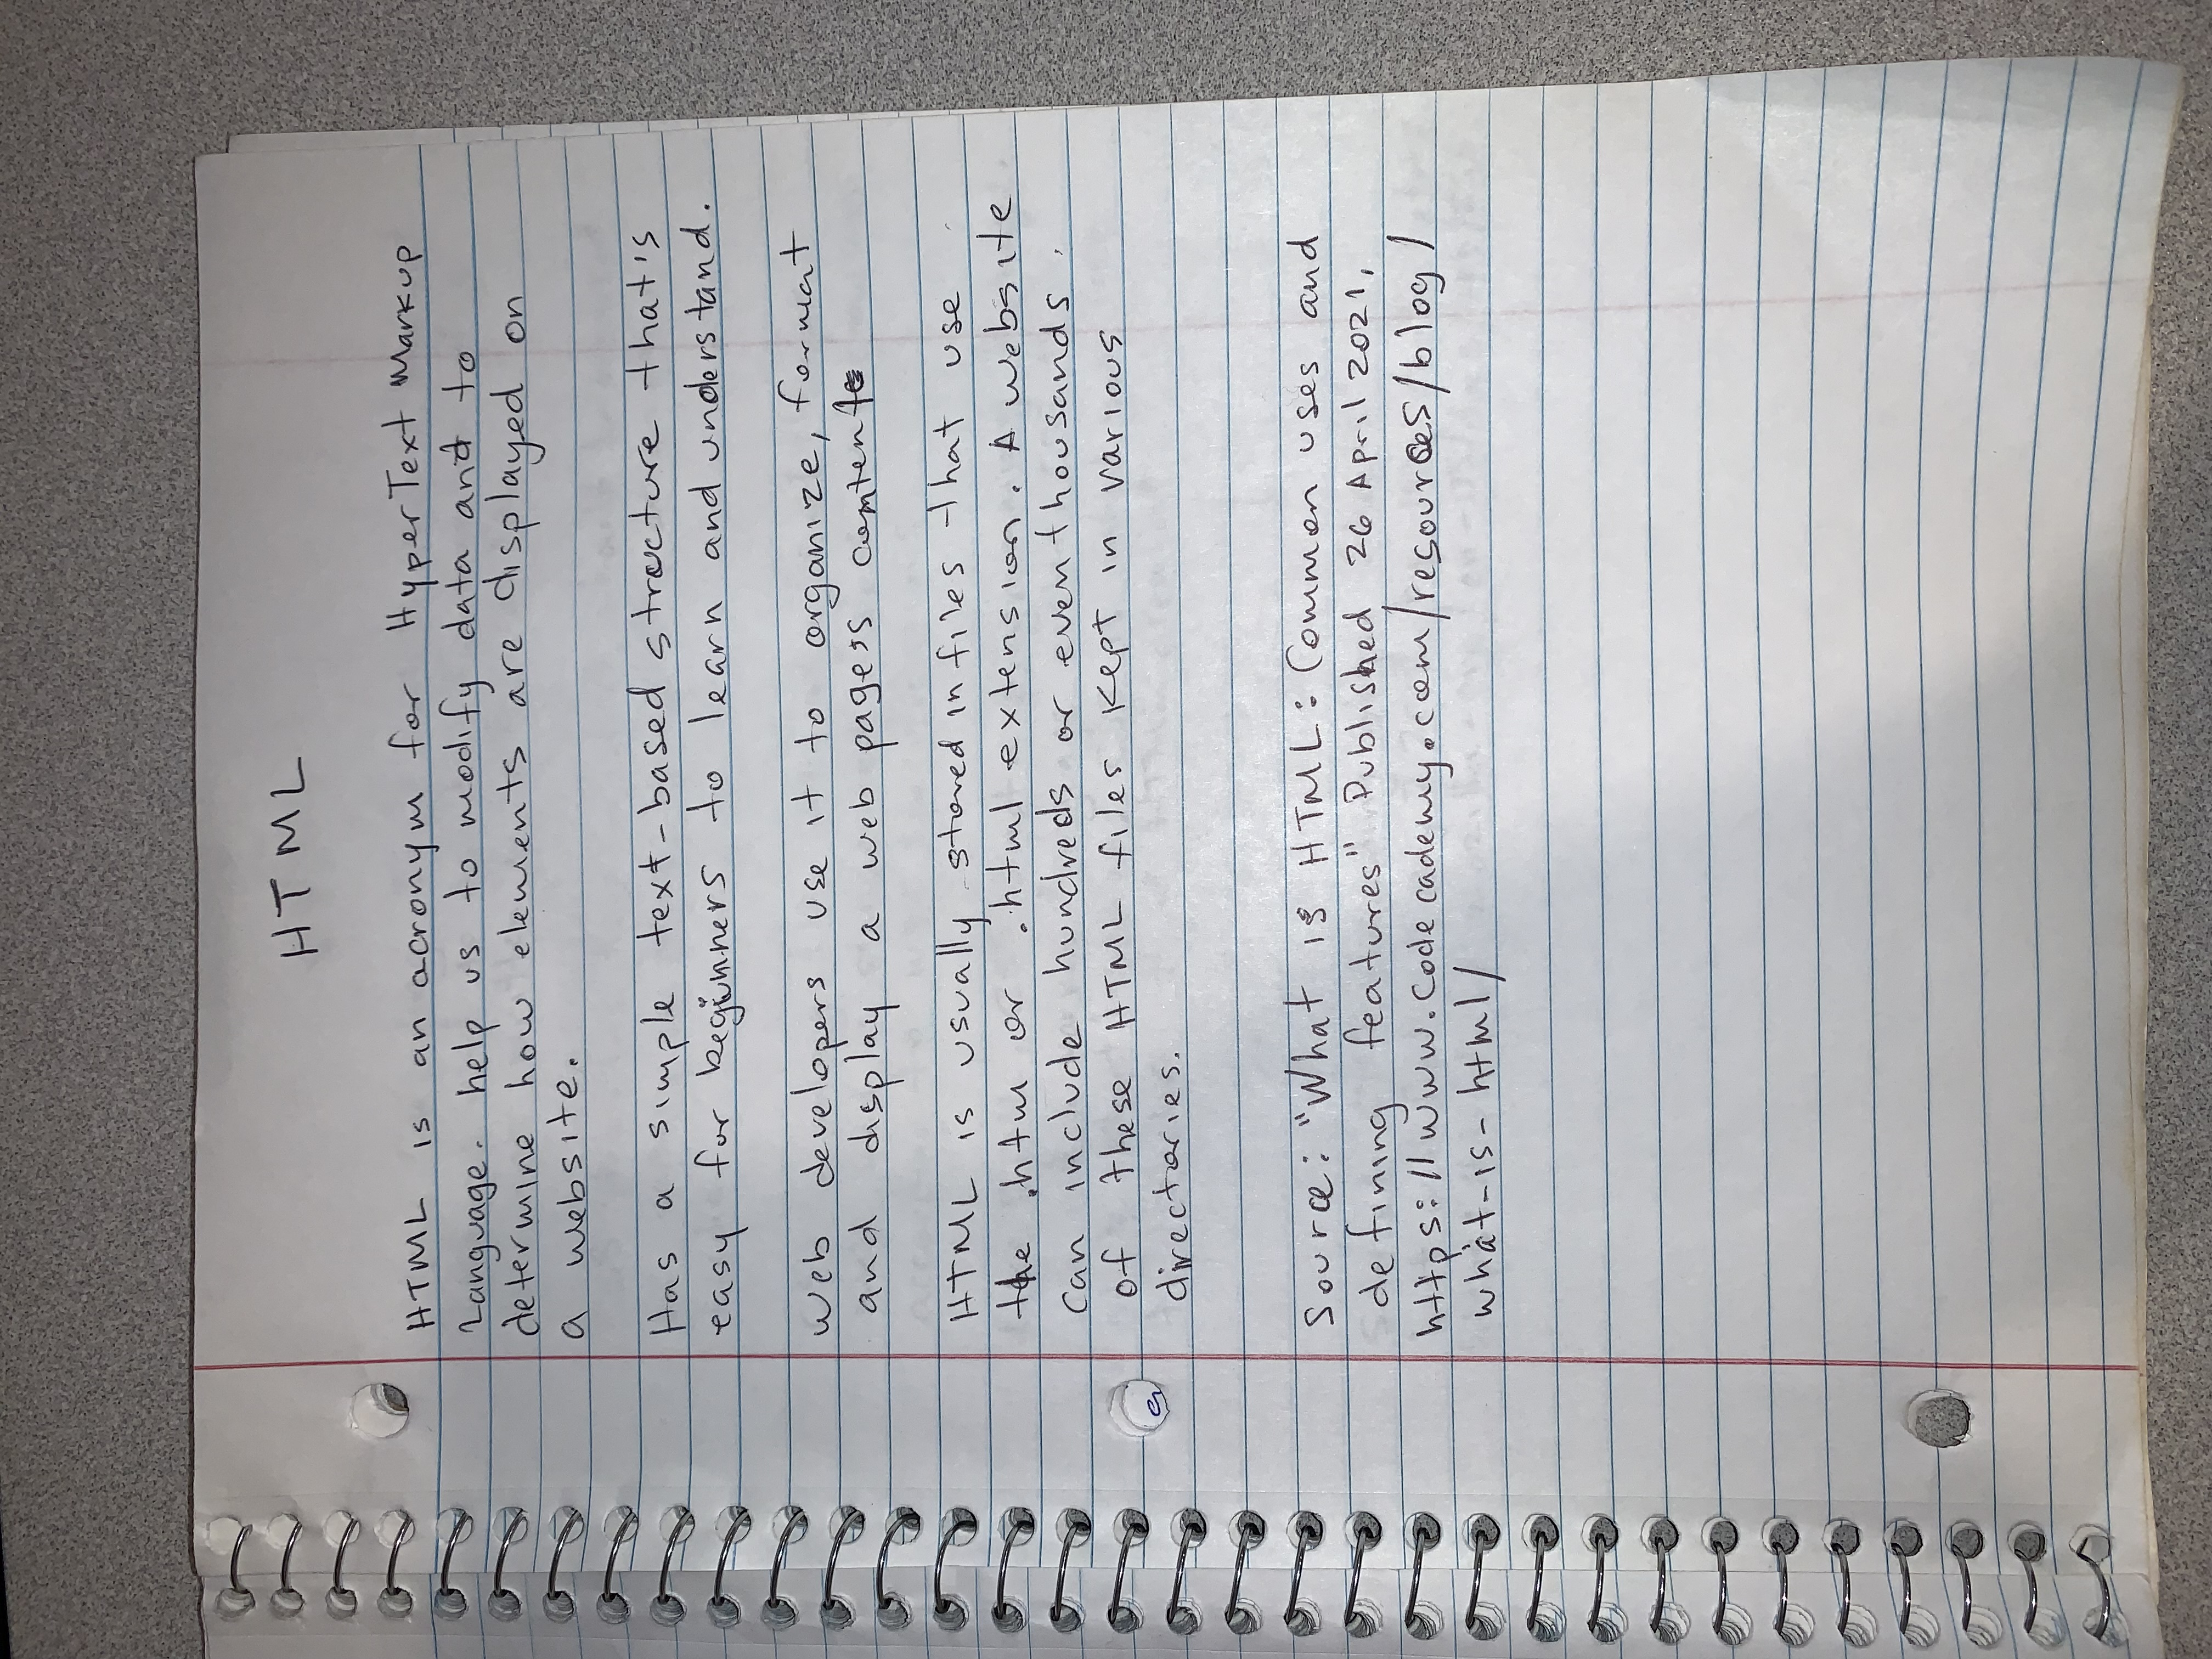 HTML
HTML is an acronym for HyperText Markup
Language. help us to modify data and to
determine how elements are displayed on
a website.
Has a simple text-based structure that's
easy for beginners to learn and understand.
Web developers use it to organize, format
and display a web page's content
HTML is usually stored in files that use
the .htm or .html extension. A website
can include hundreds or even thousands
of these HTML files kept in various
directories.
Source: "What is HTML: Common uses and
defining features" Published 26 April 2021,
https://www.codecademy.com/resources/blog/
what-is-html/